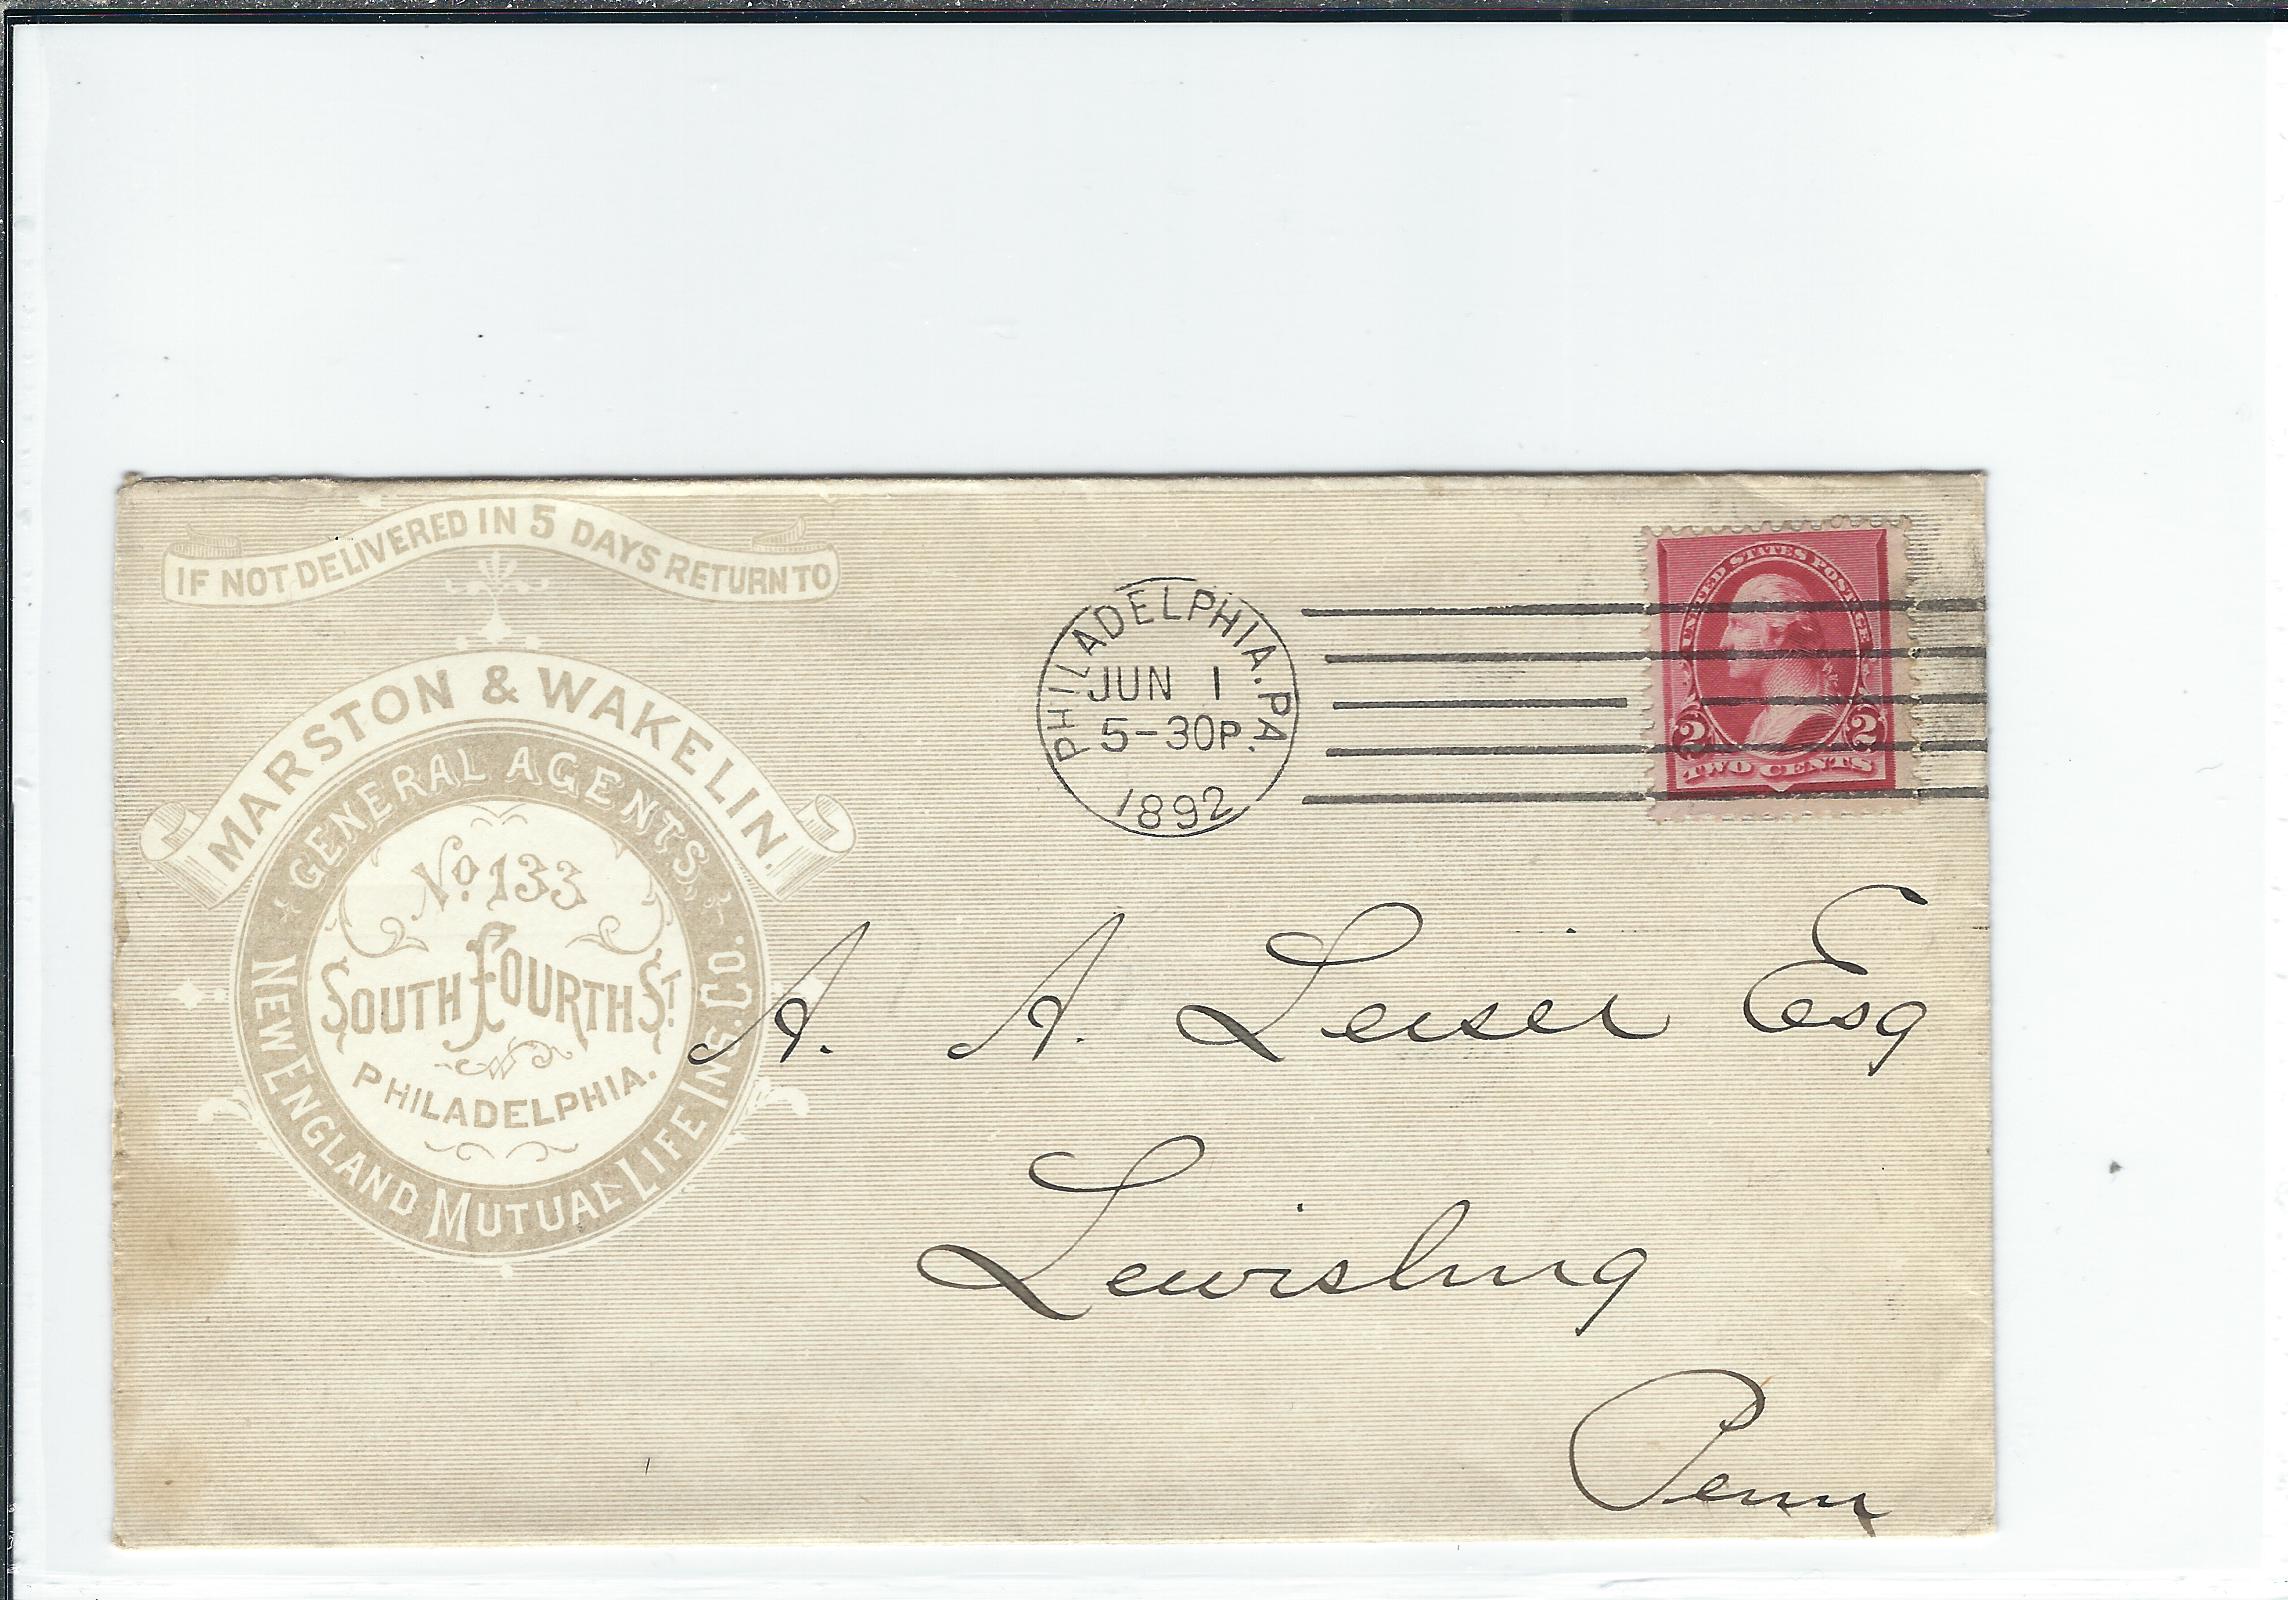 IF NOT DELIVERED IN 5 DAYS RETURN TO
MARSTON & WAKELIN.
GENERAL AGENTS,
NEW ENGLAND MUTUAL LIFE INS. CO.
No. 133
SOUTH FOURTH ST.
PHILADELPHIA.
PHILADELPHIA. PA.
JUN 1
5-30P.
1892
UNITED STATES POSTAGE
2 2
TWO CENTS
A. A. Leiser Esq
Lewisburg
Penn